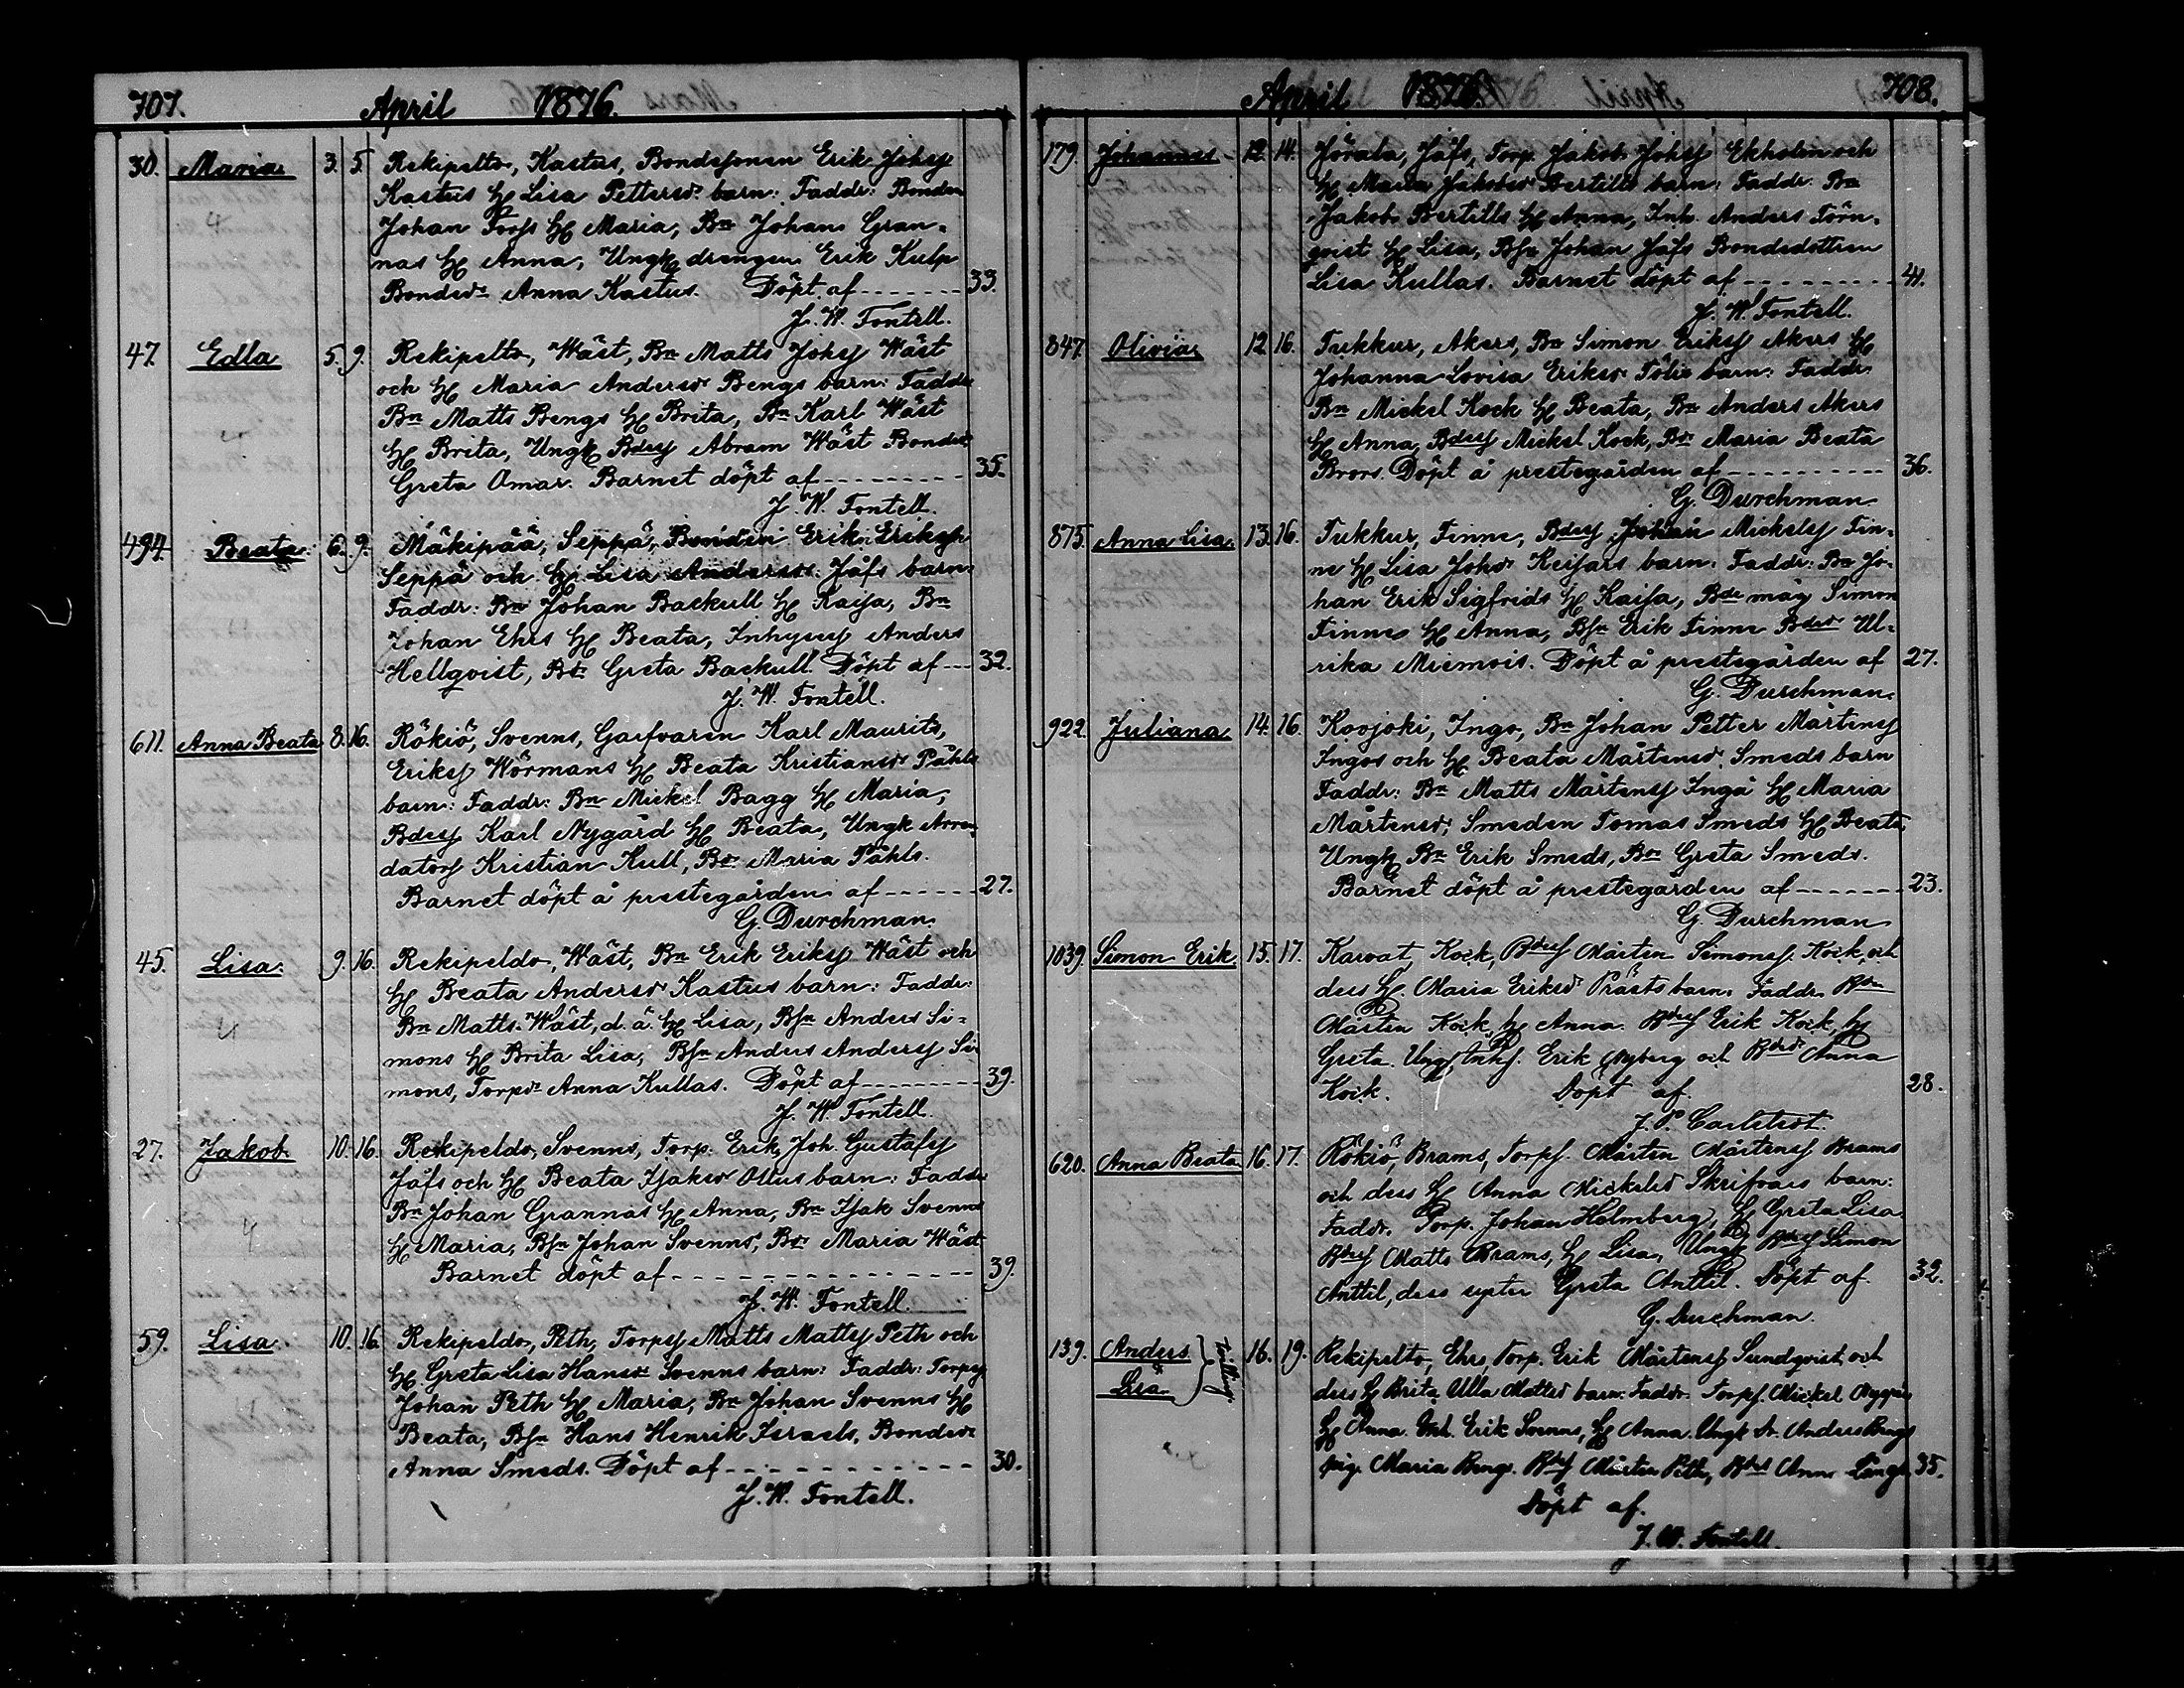 707. April 1876.
30. Maria 3. 5. Rekipelto, Kastus, Bondesonen Erik Johsf
Kastus Hu Lisa Pettersdr barn: Faddr: Bonden
Johan Forss Hu Maria, Bn Johan Gran-
nas Hu Anna, Ungk drengen Erik Kulp
Bondedr Anna Kastus. Döpt af 33.
J. W. Fontell.
47. Edla 5. 9. Rekipelto, Wäst, Bn Matts Johsf Wäst
och Hu Maria Andersdr Bengs barn: Faddr
Bn Matts Bengs Hu Brita, Bn Karl Wäst
Hu Brita, Ungk Bdesf Abram Wäst Bondedr
Greta Omar. Barnet döpt af 35.
J. W. Fontell.
494 Beata 6. 9. Mäkipää, Seppä, Bonden Erik Eriksf
Seppä och Hu Lisa Andersdr Jåfs barn:
Faddr: Bn Johan Backull Hu Kaisa, Bn
Johan Ehrs Hu Beata, Inhysesf Anders
Hellqvist, Bdr Greta Backull. Döpt af 32.
J. W. Fontell.
611. Anna Beata 8. 16. Rökiö, Svenns, Garfvaren Karl Maurits,
Eriksf Wörmans Hu Beata Kristiansdr Påhls
barn: Faddr: Bn Mickel Bagg Hu Maria,
Bdesf Karl Nygård Hu Beata, Ungk Arren-
datorsf Kristian Kull, Bdr Maria Påhls.
Barnet döpt å prestegården af 27.
G. Durchman.
45. Lisa 9. 16. Rekipeldo, Wäst, Bn Erik Eriksf Wäst och
Hu Beata Andersdr Kastus barn: Faddr:
Bn Matts Wäst, d. ä. Hu Lisa, Bsn Anders Si-
mons Hu Brita Lisa, Bsn Anders Andersf Si-
mons, Torpdr Anna Kullas. Döpt af 39.
J. W. Fontell.
27. Jakob 10. 16. Rekipeldo, Svenns, Torp. Erik Joh. Gustafsf
Jåfs och Hu Beata Isaksdr Ollus barn: Faddr
Bn Johan Grannas Hu Anna, Bn Isak Svenns
Hu Maria, Bsn Johan Svenns, Bdr Maria Wäst
Barnet döpt af 39.
J. W. Fontell.
59. Lisa 10. 16. Rekipeldo, Peth, Torpsf Matts Mattsf Peth och
Hu Greta Lisa Hansdr Svenns barn: Faddr: Torpsf
Johan Peth Hu Maria, Bn Johan Svenns Hu
Beata, Bsn Hans Henrik Israels, Bondedr
Anna Smeds. Döpt af 30.
J. W. Fontell.
April 1876. 708.
179. Johannes 12. 14. Jörala, Jåfs, Torp. Jakob Johsf Ekholm och
Hu Maria Jakobsdr Bertills barn: Faddr. Bn
Jakob Bertills Hu Anna, Inh. Anders Törn-
qvist Hu Lisa, Bsn Johan Jåfs Bondedottren
Lisa Kullas. Barnet döpt af 41.
J. W. Fontell.
847. Olivia 12 16. Tukkur, Akers, Bn Simon Eriksf Akers Hu
Johanna Lovisa Eriksdr Tölis barn: Faddr.
Bn Mickel Kock Hu Beata, Bn Anders Akers
Hu Anna, Bdesf Mickel Kock, Bdr Maria Beata
Brors. Döpt å prestegården af 36.
G. Durchman
875. Anna Lisa 13. 16. Tukkur, Finne, Bdesf Johan Mickelsf Fin-
ne Hu Lisa Johsdr Keisars barn: Faddr: Bn Jo-
han Erik Sigfrids Hu Kaisa, Bde måg Simon
Finne Hu Anna, Bsn Erik Finne Bdedr Ul-
rika Miemois. Döpt å prestegården af 27.
G. Durchman.
922. Juliana 14. 16. Koojoki, Ingo, Bn Johan Petter Mårtensf
Ingos och Hu Beata Mårtensdr Smeds barn
Faddr: Bn Matts Mårtensf Ingå Hu Maria
Mårtensdr, Smeden Tomas Smeds Hu Beata,
Ungk Bn Erik Smeds, Bdr Greta Smeds.
Barnet döpt å prestegården af 23.
G. Durchman
1039. Simon Erik 15. 17. Karvat, Kock, Bdesf Mårten Simonsf. Kock, och
dess Hu. Maria Eriksdr Prästs barn. Faddr. Bdn
Mårten Kock, Hu Anna. Bdesf Erik Kock, Hu
Greta. Ungk, Inhs. Erik Nyberg och Bdedr Anna
Kock. Döpt af. 28.
J. P. Carlstedt.
620. Anna Beata 16. 17. Rökiö, Brams, Torps. Mårten Mårtensf Brams
och dess Hu Anna Mickelsdr Skrifvars barn:
Faddr. Torp. Johan Holmberg, Hu Greta Lisa.
Bdesf Matts Brams, Hu Lisa, Ungk Bdesf Simon
Anttil, dess syster Greta Anttil. Döpt af. 32.
G. Durchman.
139. Anders & Lisa tvilling. 16. 19. Rekipelto, Ehrs, Torp. Erik Mårtensf Sundqvist och
dess Hu Brita Ulla Mattsdr barn: Faddr. Torps. Mickel
Hu Anna. Inh. Erik Svenns, Hu Anna. Ungk Dr. Anders Bengs
pig. Maria Bengs. Bdsf Mårten Peth, Bdrs Anna Långs 35.
Döpt af.
J. W. Fontell.